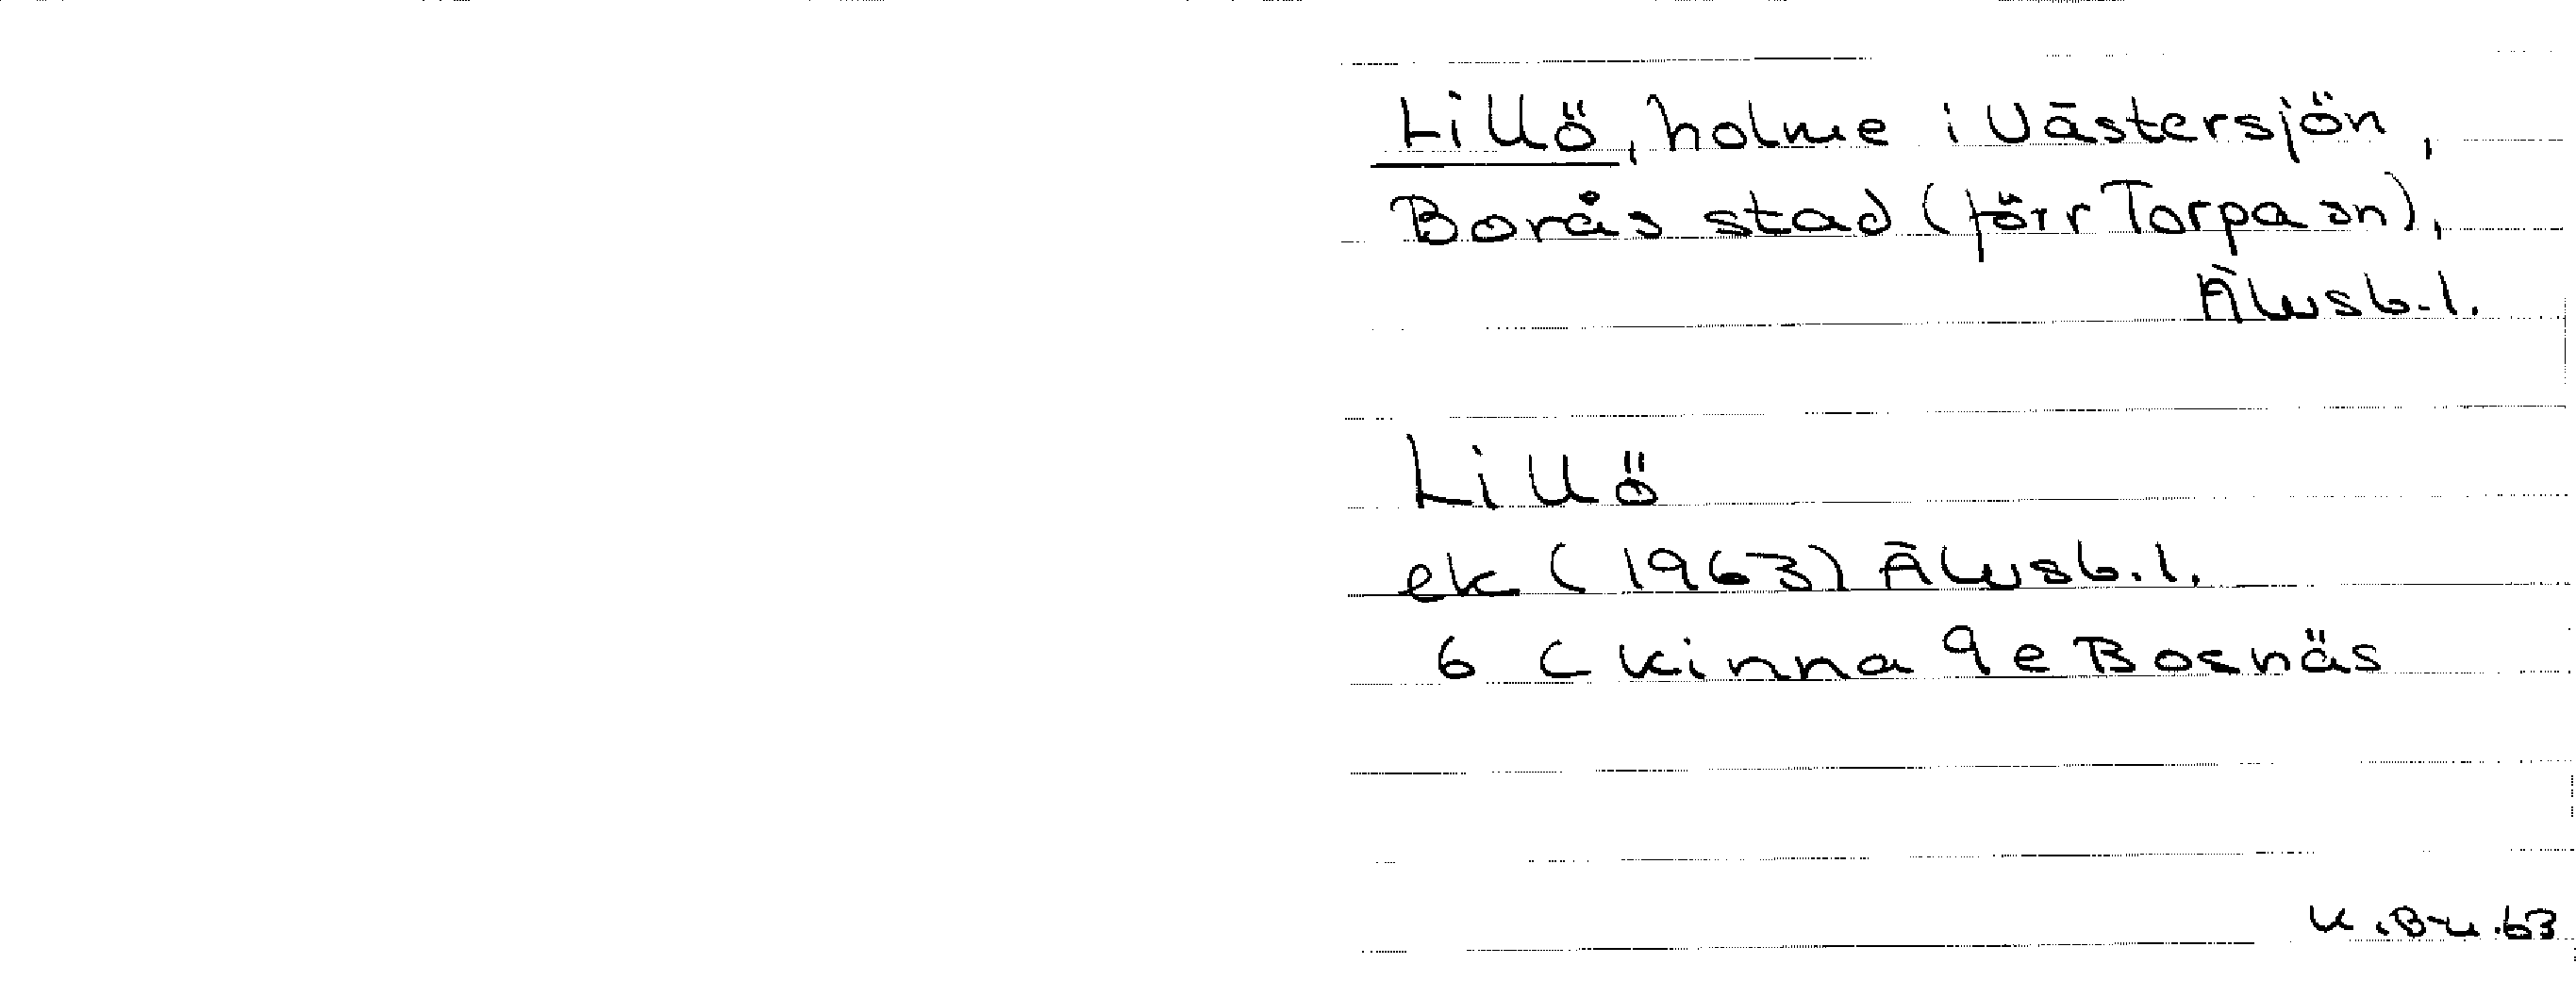 Lillö, holme i Västersjön,
Borås stad (förr Torpa sn),
Älvsb.l.
Lillö
ek (1963) Älvsb.l.
6 C Kinna 9e Bosnäs
K.Br.63